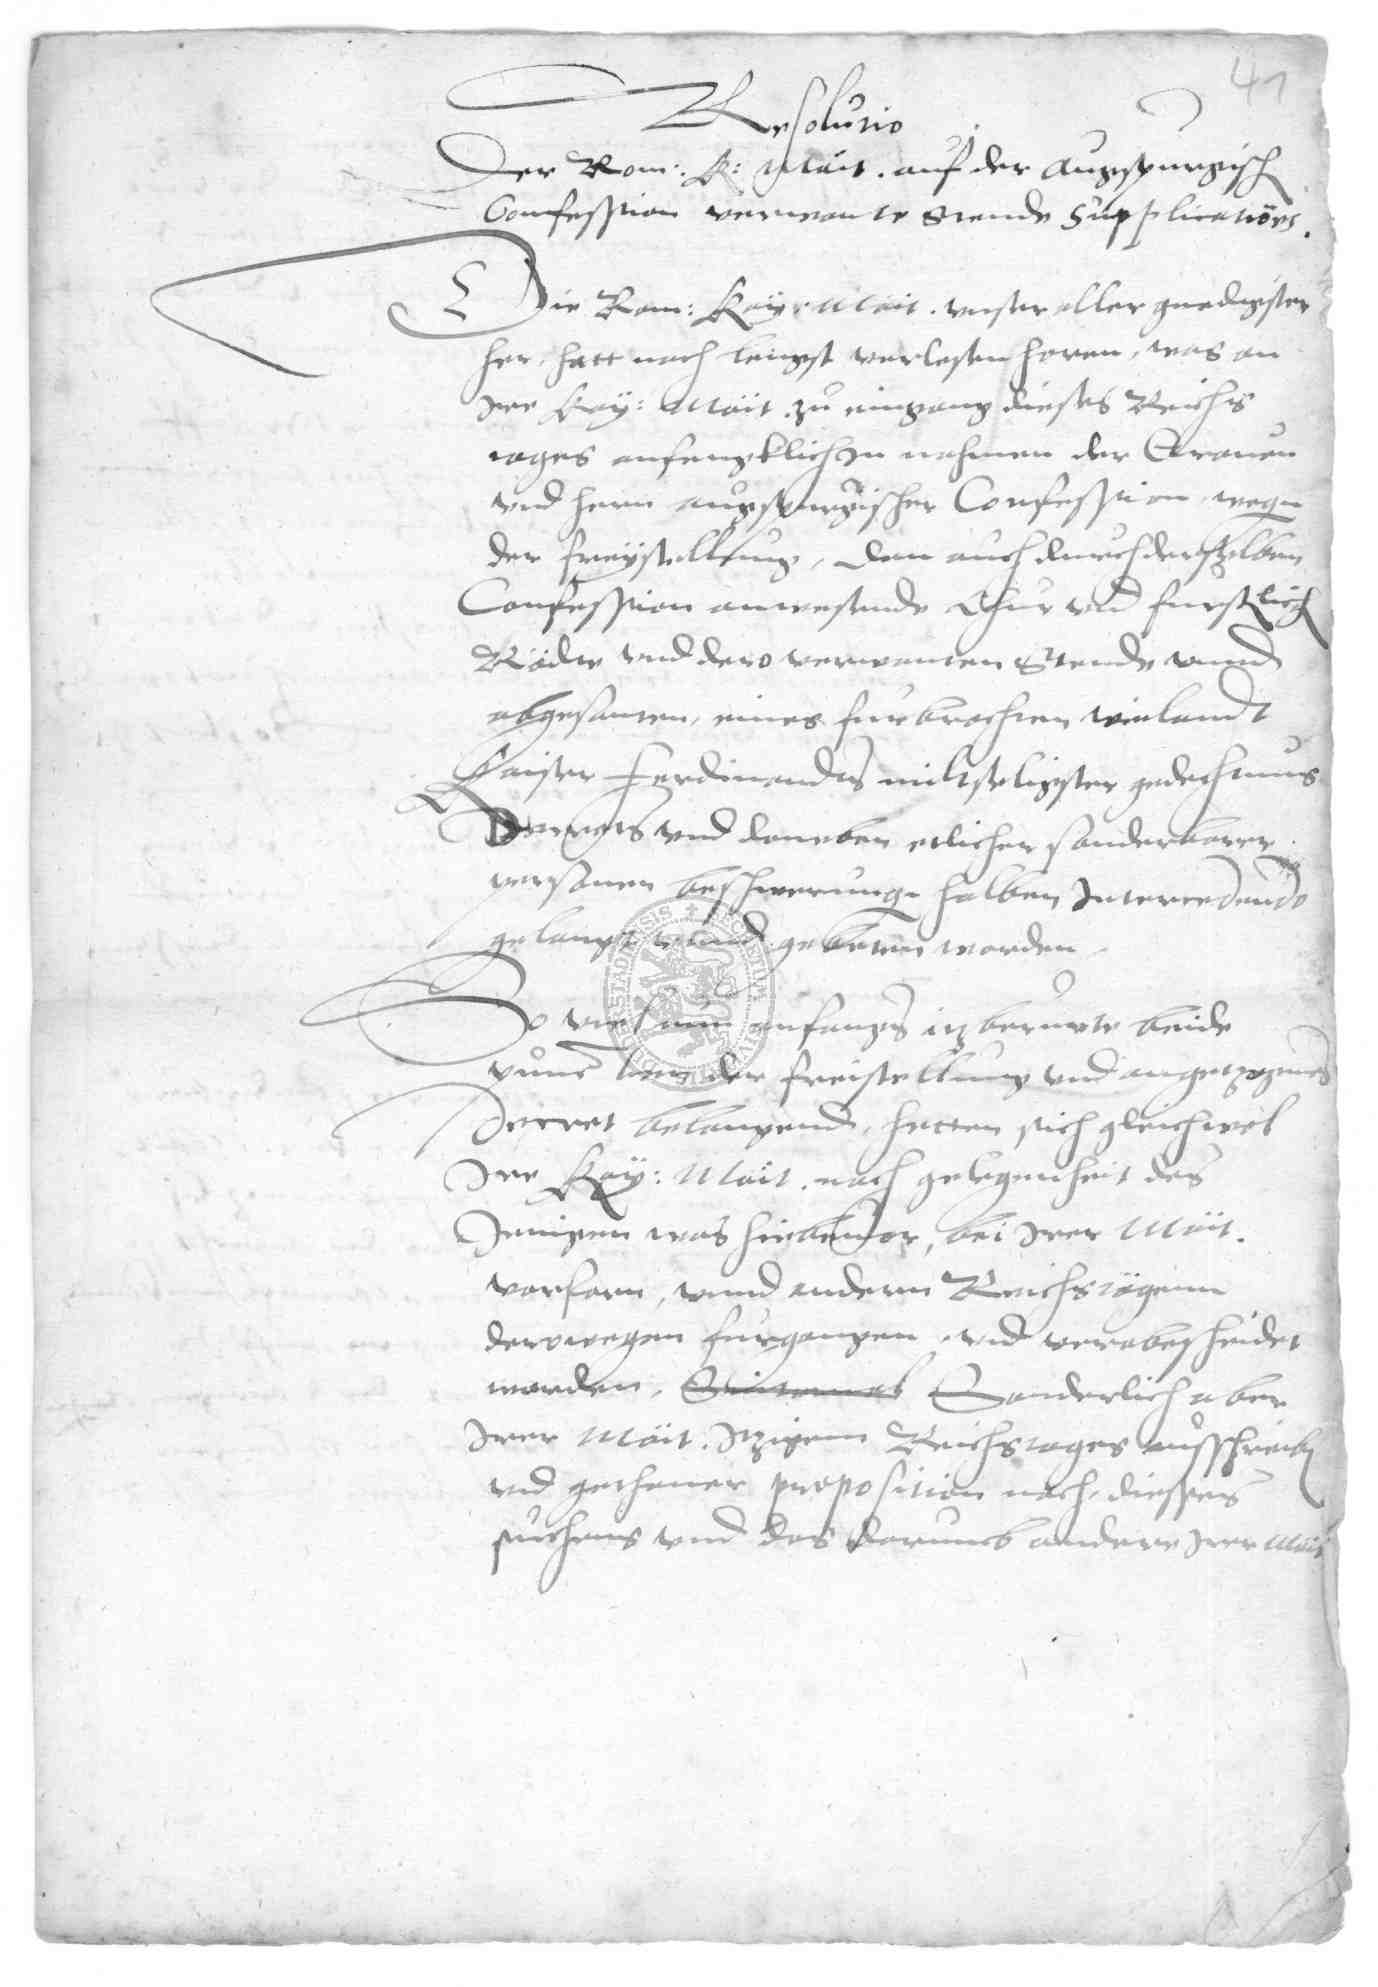 41
Resolutio
Der Rom: K: Maÿt. auf der Augspurgisch
Confession verwante Stende Supplicationes.
Die Rom: Kaÿ: Maÿt. unser aller gnedigster
her, hatt nach lengst verlesen horen, was an
Irer Kaÿ: Maÿt. zu eingang dieses Reichs
tages anfengklich In nahmen der Grauen
und hern augspurgischer Confession, wegn
der freÿstellung, dan auch durch derselben
Confession anwesende Chur und furstlich
Rädte und dero verwanten Stende unnd
abgesanten, eines furbrachten weilandt
Kaiser Ferdinandts miltseligster gedechtnus
Decrets und daneben etlicher sonderbarer
personen beschwerunge halben Intercedendo
gelangt unnd gebeten worden.
So viel nun anfangs itz berurte beide
puncten der freistellung und angetzogenes
Decret belangend, hetten sich gleichwol
Ire Kaÿ: Maÿt. nach gelegenheit des
Jenigen was hiebeuor, bei Irer Maÿt.
vorfarn, unnd andern Reichstägenn
derowegen furgangen und verabscheidet
worden, Sonderlich aber
Irer Maÿt. Itzigem Reichstages ausschreiben
und gethaner proposition nach, dieses
suchens und das darumb andere Irer Maÿt